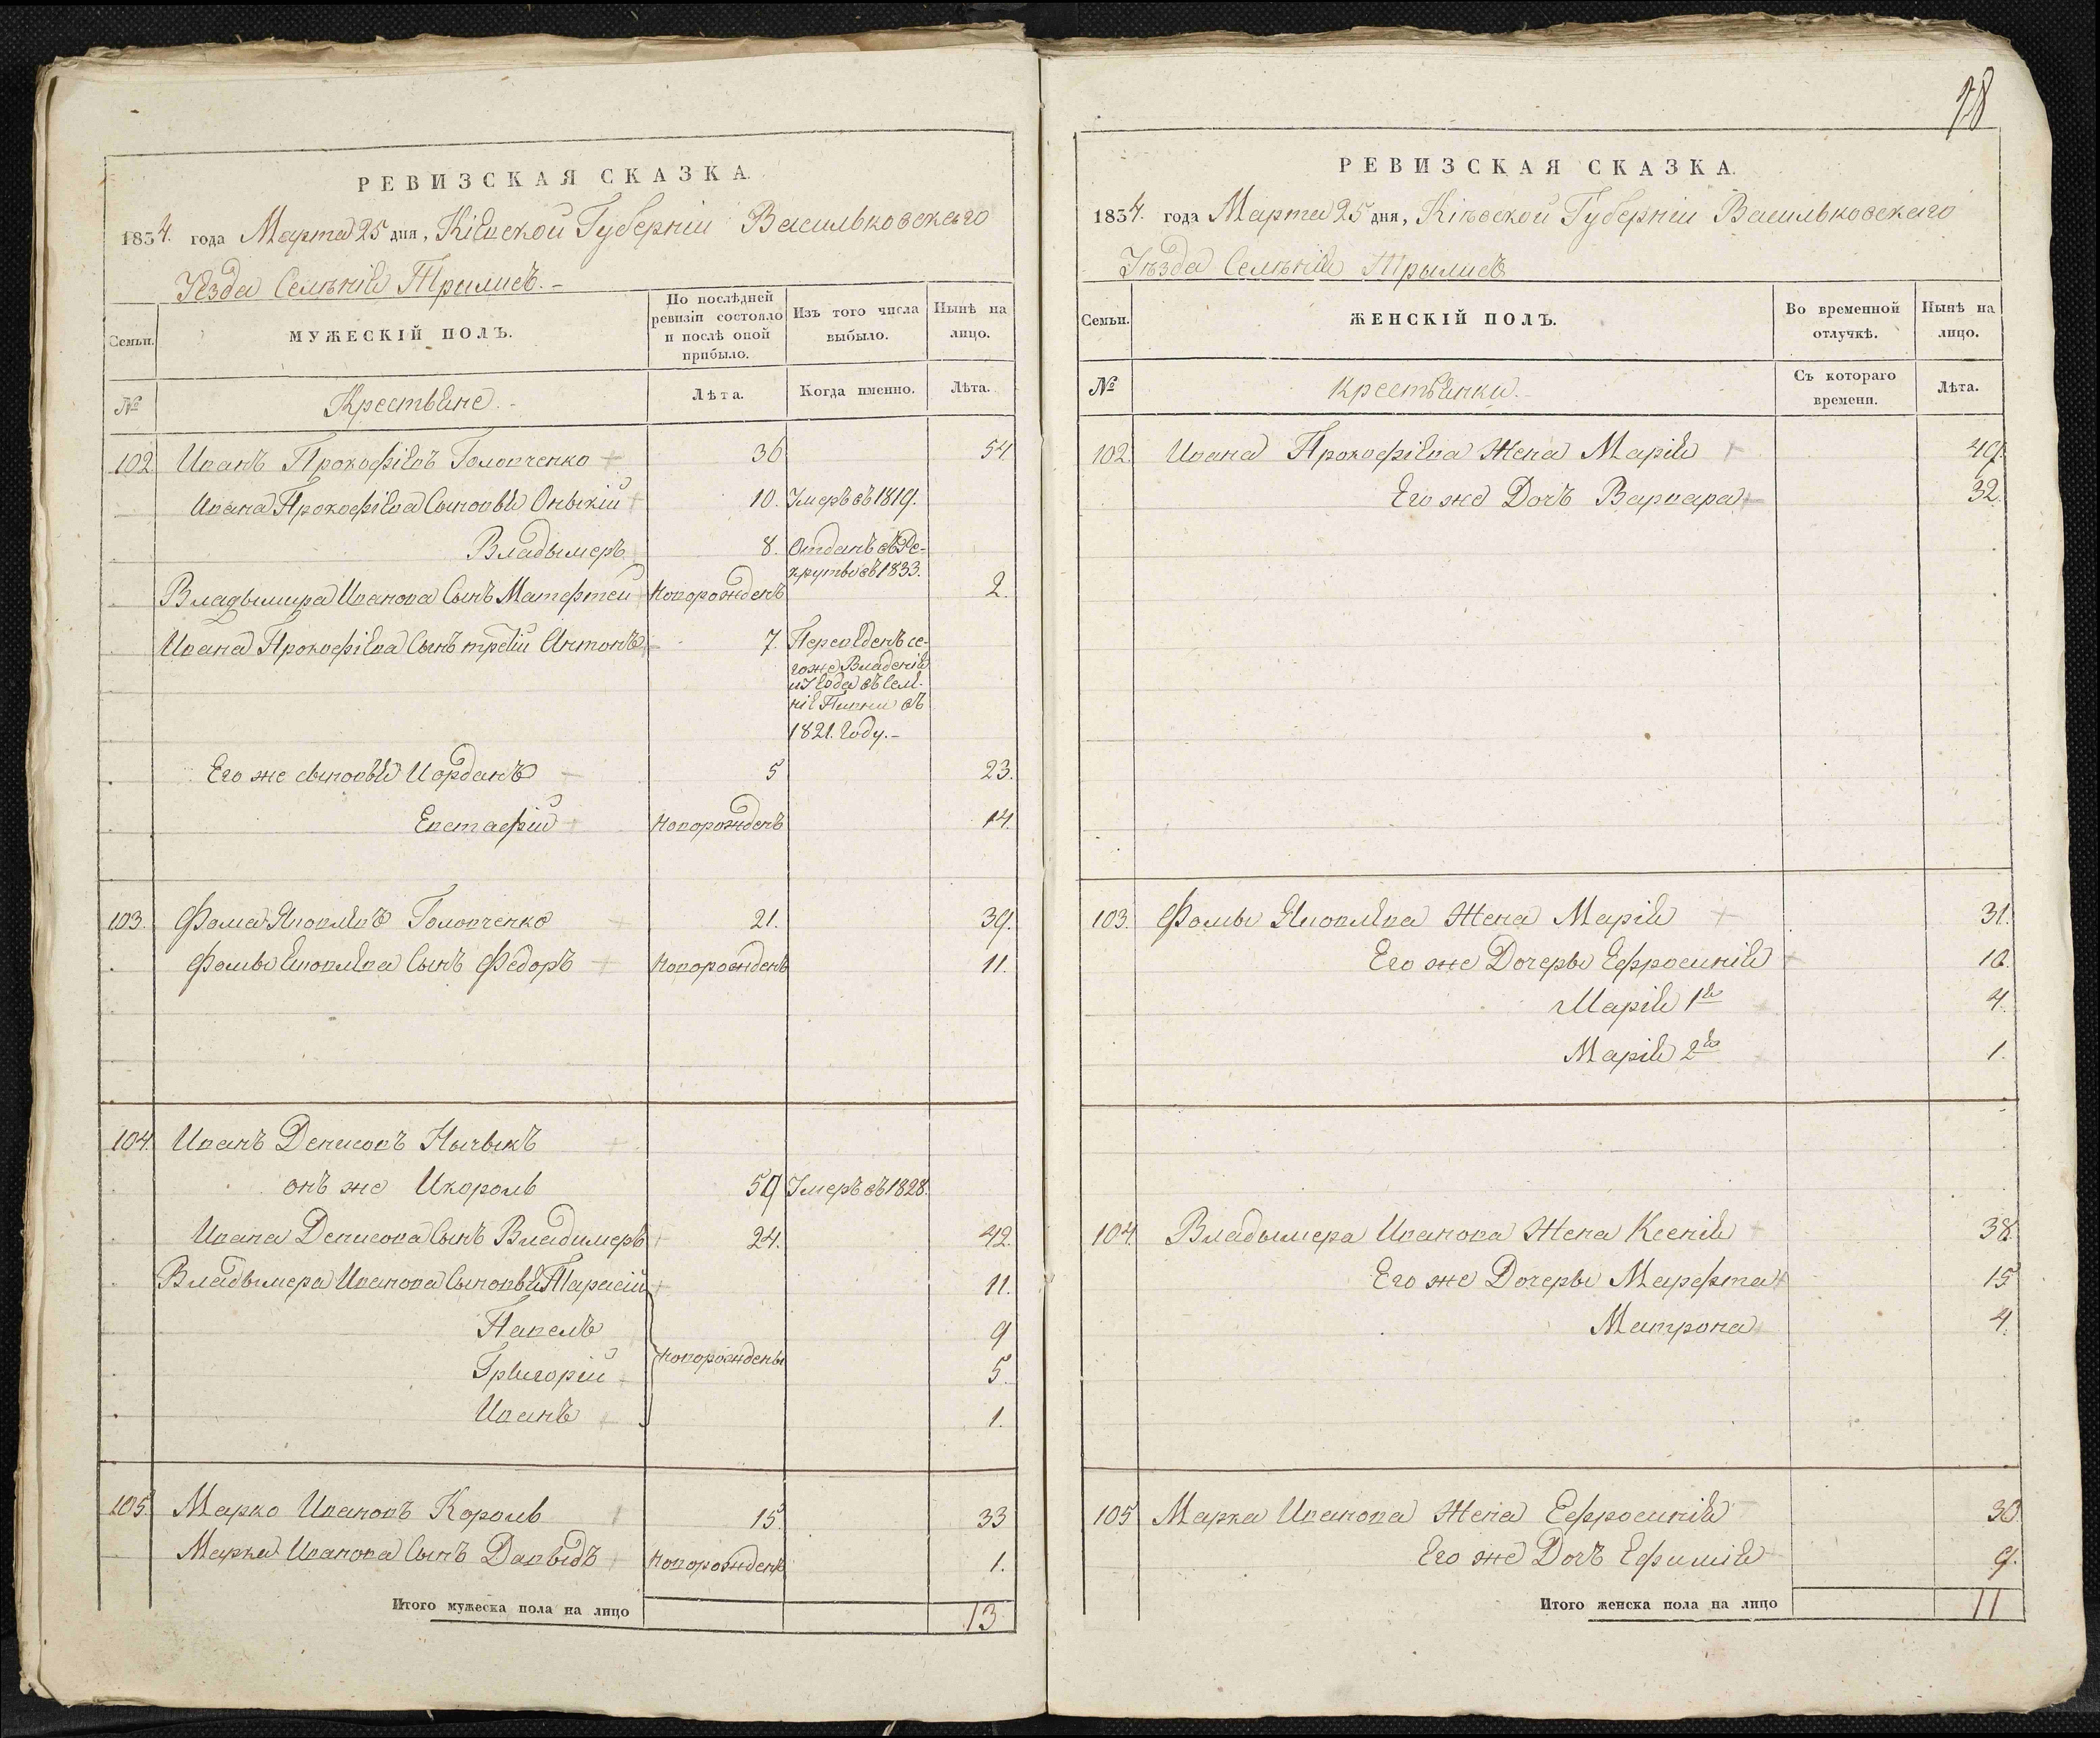 РЕВИЗСКАЯ СКАЗКА.
1834. года Марта 25 дня, Кіевской Губерніи Васильковскаго
Уѣзда Селѣнія Трилисъ.
Семьи.
МУЖЕСКІЙ ПОЛЪ.
По послѣдней ревизіи состояло и послѣ оной прибыло.
Изъ того числа выбыло.
Нынѣ на лицо.
№
Крестьяне.
Лѣта.
Когда именно.
Лѣта.
102 Иванъ Прокофіевъ Головченко 36 54
Ивана Прокофіева Сыновья Оныкій 10. Умеръ въ 1819.
Владымеръ 8. Отданъ въ Ре-
круты въ 1833.
Владымира Иванова Сынъ Матефтей Новорожденъ 2.
Ивана Прокофіева Сынъ третій Антонъ 7. Переведенъ се-
гоже Владенія
въ
1821. Году.
Его же сыновья Иорданъ 5 23.
Евстафій Новорожденъ 14.
103. Фома Яковлевъ Головченко 21. 39.
Фомы Яковлева Сынъ Федоръ Новорожденъ 11.
104. Иванъ Денисовъ Нычыкъ
онъ же Икороль 59 Умеръ въ 1828.
Ивана Денисова Сынъ Владимеръ 24. 42.
Владымера Иванова Сыновья Тарасій 11.
Павелъ 9
Новорождены
Григорій 5.
Иванъ 1.
105. Марко Ивановъ Король 15. 33
Марка Иванова Сынъ Давыдъ Новорожденъ 1.
Итого мужеска пола на лицо 13
18
РЕВИЗСКАЯ СКАЗКА.
1834. года Марта 25 дня, Кіевской Губерніи Васильковскаго
Уѣзда Селѣнія Трылисъ
Семьи.
ЖЕНСКІЙ ПОЛЪ.
Во временной отлучкѣ.
Нынѣ на лицо.
№
Крестьянки.
Съ котораго времени.
Лѣта.
102. Ивана Прокофіева Жена Марія 49.
Его же Дочъ Варвара 32.
103. Фомы Яковлева Жена Марія 31.
Его же Дочеры Ефросинія 10.
Марія 1я 4.
Марія 2я 1.
104. Владымера Иванова Жена Ксенія 38.
Его же Дочеры Марефта 15
Матрона 4.
105 Марка Иванова Жена Ефросинія 30.
Его же Дочъ Ефимія 9.
Итого женска пола на лицо 11